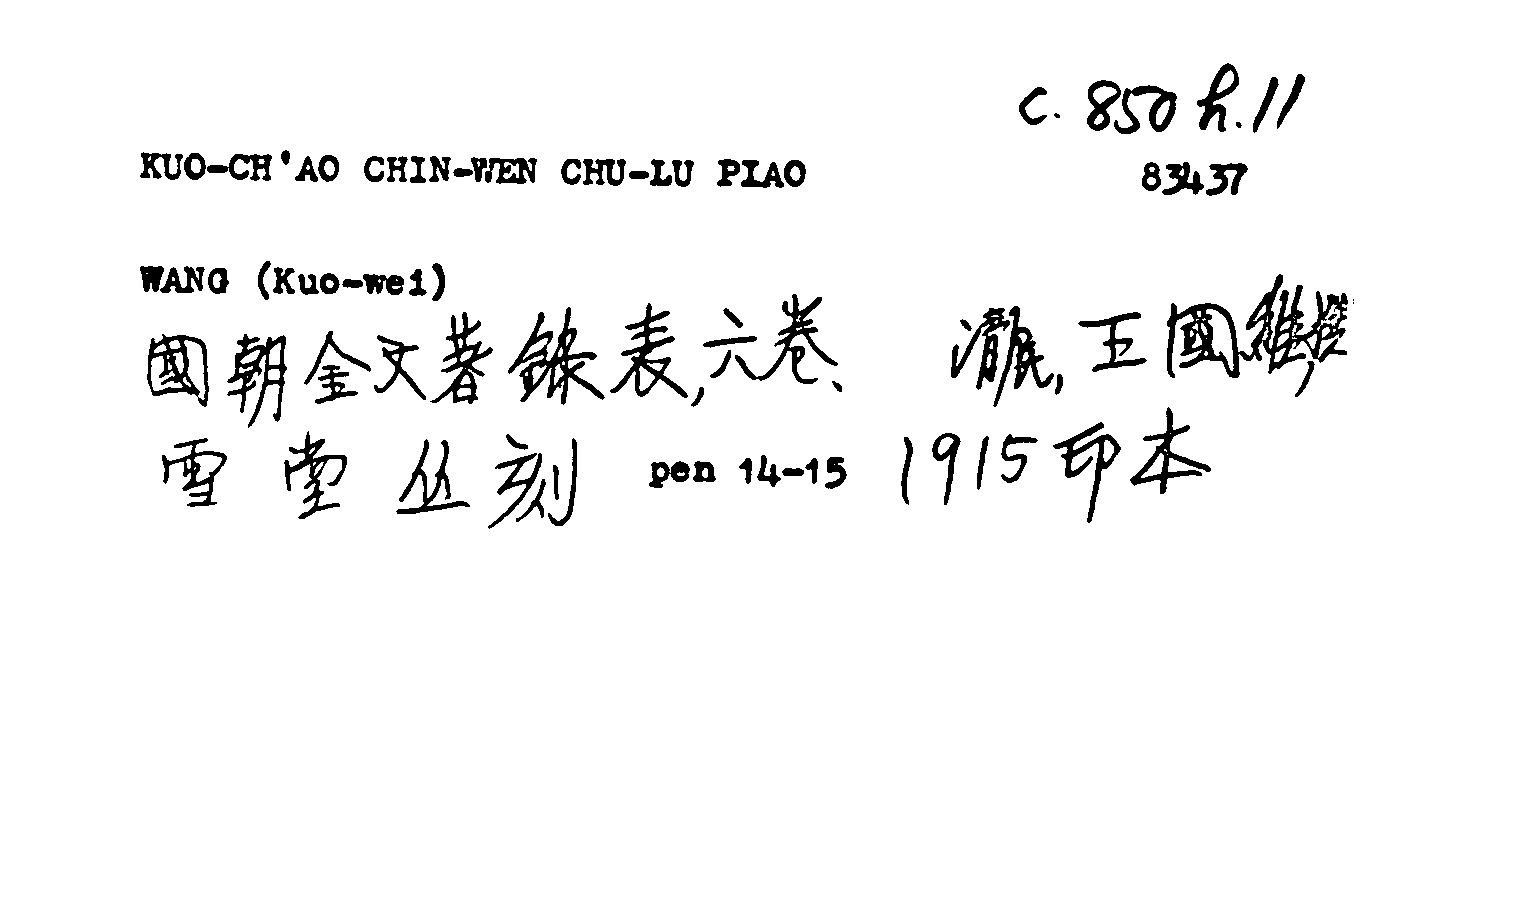 c. 850 h. 11
KUO-CH'AO CHIN-WEN CHU-LU PIAO 83437
WANG (Kuo-wei)
國朝金文著錄表,六卷、 王國維撰
雪堂丛刻 pen 14-15 1915印本